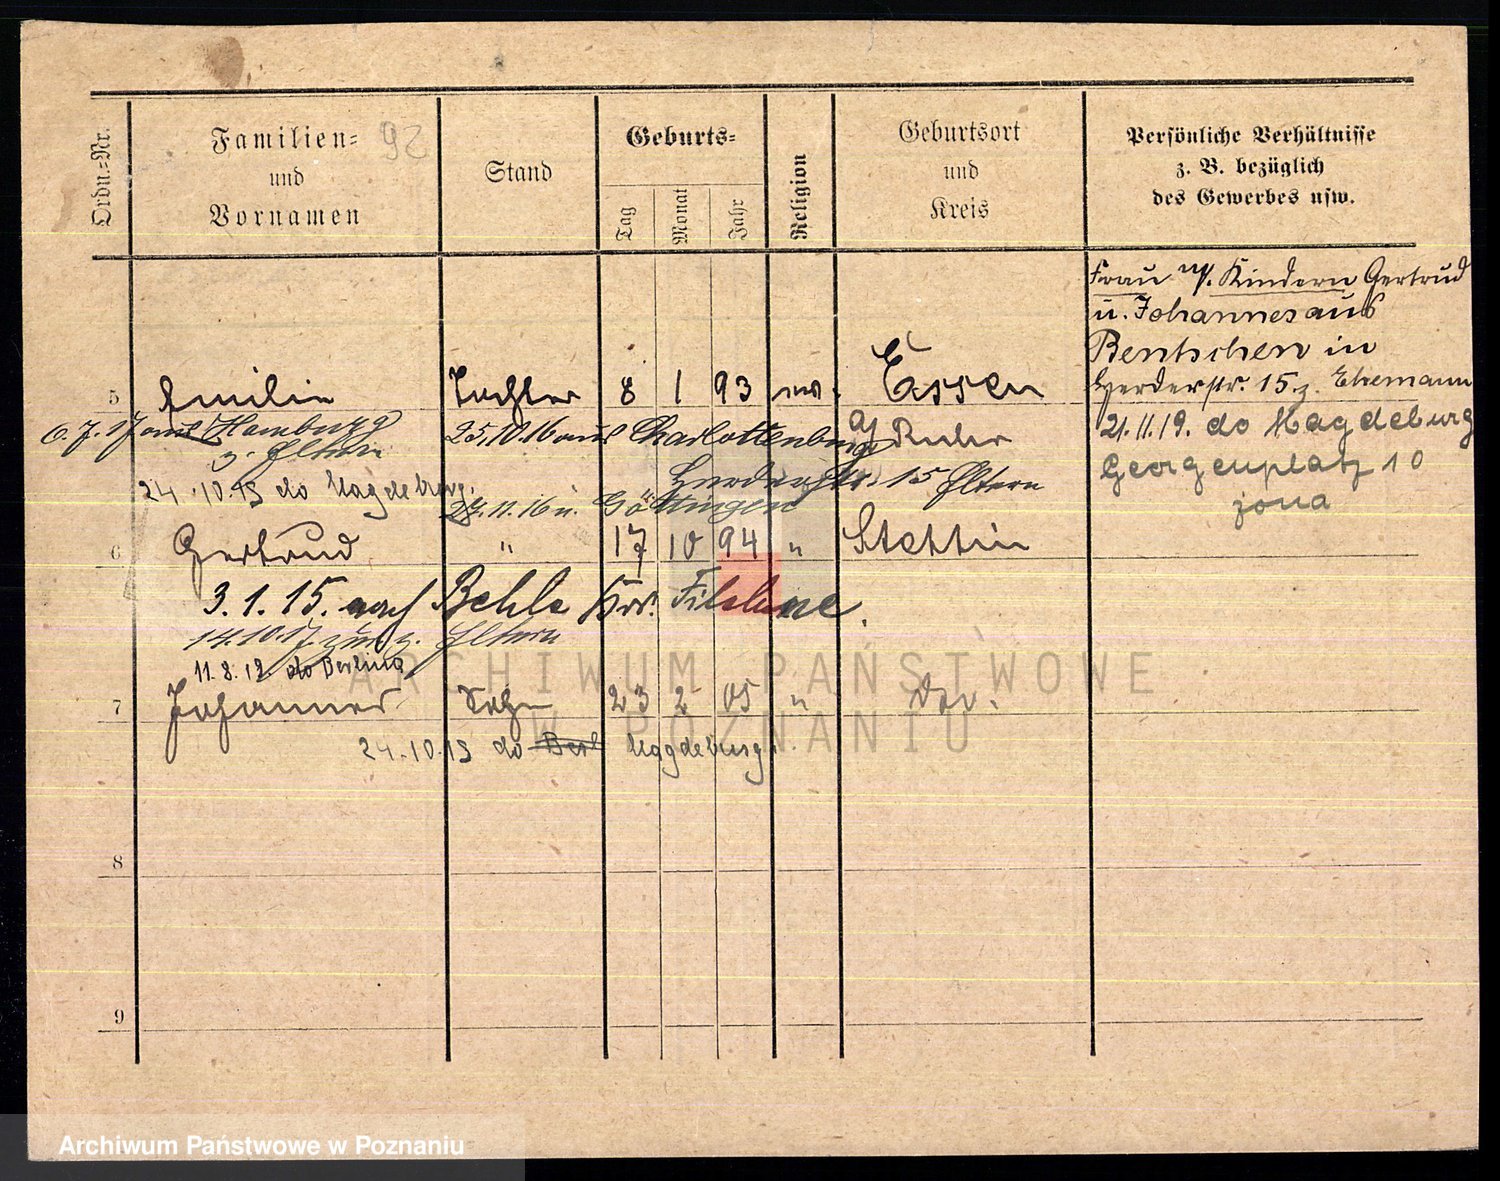 Ordn.=Nr.
Familien=
und
Vornamen
92
Stand
Geburts=
Tag
Monat
Jahr
Religion
Geburtsort
und
Kreis
Persönliche Verhältnisse
z. B. bezüglich
des Gewerbes usw.
Frau m/. Kindern Gertrud
u. Johannes aus
Bentschen in
Herderstr. 15 z. Ehemann
21.11.19. do Magdeburg
Georgenplatz 10
żona
5 Emilie Tochter 8 1 93 Essen
a/ Ruhr
6.7.17 aus Hamburg
z. Eltern
25.10.16 aus Charlottenburg
Herderstr. 15 Eltern
24.10.19 do Magdeburg.
24.11.16 n. Göttingen
6 Gertrud " 17 10 94 " Stettin
3.1.15. nach Behle Krs. Filehne.
14.10.17 zur. z. Eltern
11.8.19. do Berlina
7 Johannes Sohn 23 2 05 "
24.10.19 do Berl Magdeburg.
8
9
ARCHIWUM PAŃSTWOWE
W POZNANIU
Archiwum Państwowe w Poznaniu